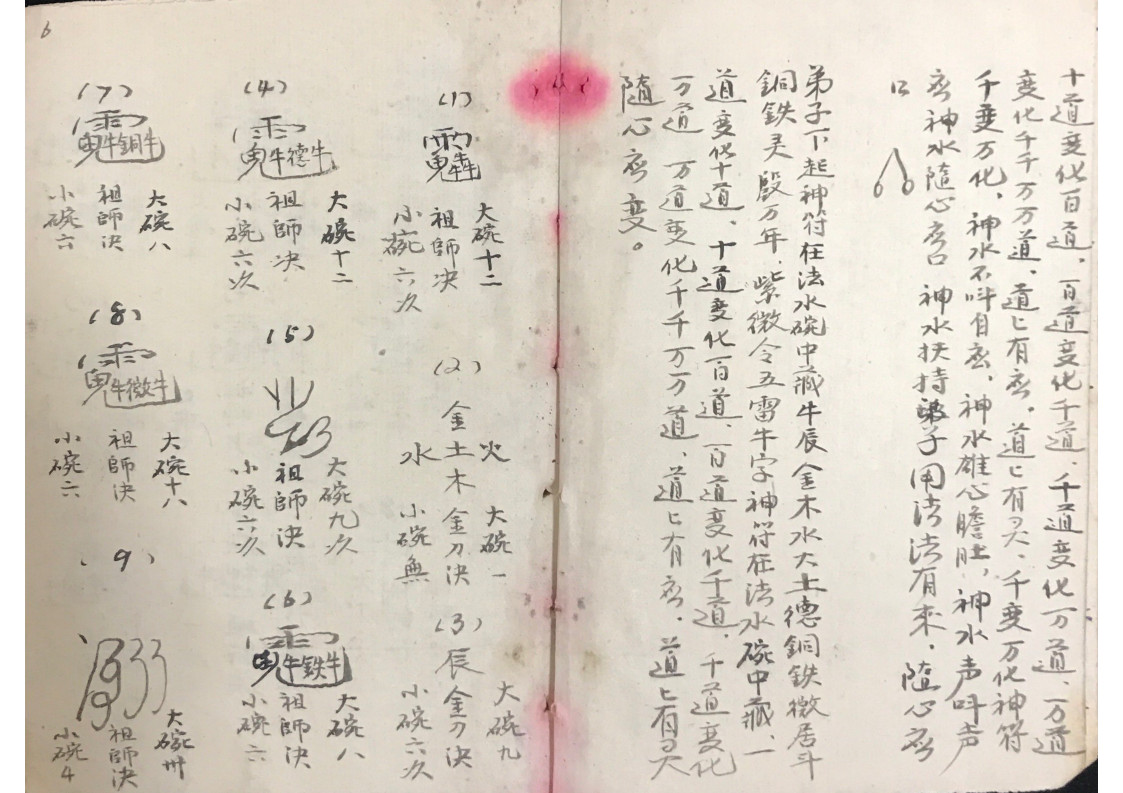 十道变化百道、百道变化千道、千道变化万道、万道
变化千千万万道、道〻有应。道〻有灵、千变万化神符
千变万化、神水不叫自应、神水雄心瞻肚、神水声叫声
应神水隨心应口 神水扶持弟子用法法有来、隨心应
口
弟子下起神符在法水碗中藏牛辰金木水大土德銅鉄微居斗
銅鉄灵殿万年、紫微令五雷牛字神符在法水碗中藏、一
道变化十道、十道变化百道、百道变化千道、千道变化
万道 万道变化千千万万道、道〻有应、道〻有灵
隨心应变。
6
(1)
大碗十二
祖師决
小碗六次
(2)
火
金土木
水
大碗一
金刀决
小碗無
(3)
辰
大碗九
金刀决
小碗六次
(4)
大碗十二
祖師决
小碗六次
(5)
大碗九次
祖師决
小碗六次
(6)
大碗八
祖師决
小碗六
(7)
大碗八
祖師决
小碗六
(8)
大碗十八
祖師决
小碗六
9
大碗卅
祖師决
小碗4